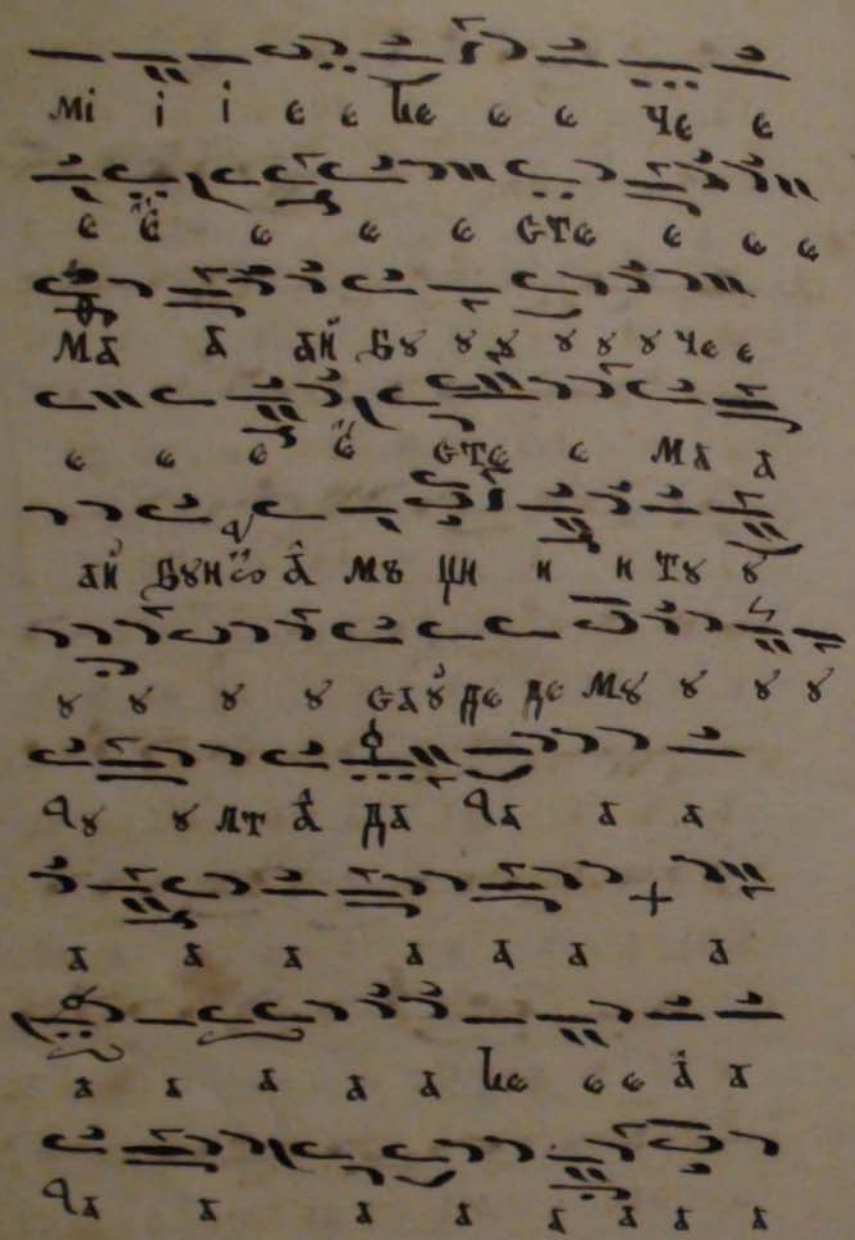 мі і і є є є є чє є
є є є є є єтє є є є
ма а ай бꙋ ꙋ ꙋ ꙋ ꙋ ꙋ чє є
є є є є єтє є ма а
ай бꙋн ѡ а мꙋ цн н н тꙋ ꙋ
ꙋ ꙋ ꙋ ꙋ саꙋ дє дє мꙋ ꙋ ꙋ ꙋ
ꙋ лт а да а а
а а а а а а а
а а а а а є є а а
а а а а а а а